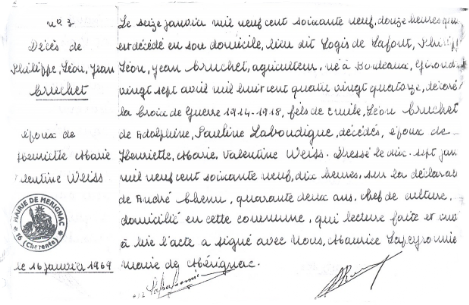 n° 3
Décès de
Philippe, Léon, Jean
Bruchet
époux de
Henriette Marie
Valentine Weiss
MAIRIE DE MERIGNAC
16 (Charente)
le 16 janvier 1969
Le seize janvier mil neuf cent soixante neuf, douze heures
est décédé en son domicile, lieu dit Logis de Lafont, Philippe
Léon, Jean Bruchet, agriculteur, né à Bordeaux, Gironde
vingt sept avril mil huit cent quatre vingt quatorze, décoré
la Croix de Guerre 1914-1918, fils de Emile, Léon Bruchet
de Adolphine, Pauline Laboudigue, décédés, époux de
Henriette, Marie, Valentine Weiss. Dressé le dix-sept jan
mil neuf cent soixante neuf, dix heures, sur la déclarat
de André, quarante deux ans, chef de culture,
domicilié en cette commune, qui lecture faite et
à lire l'acte a signé avec Nous, Maurice
maire de Mérignac.